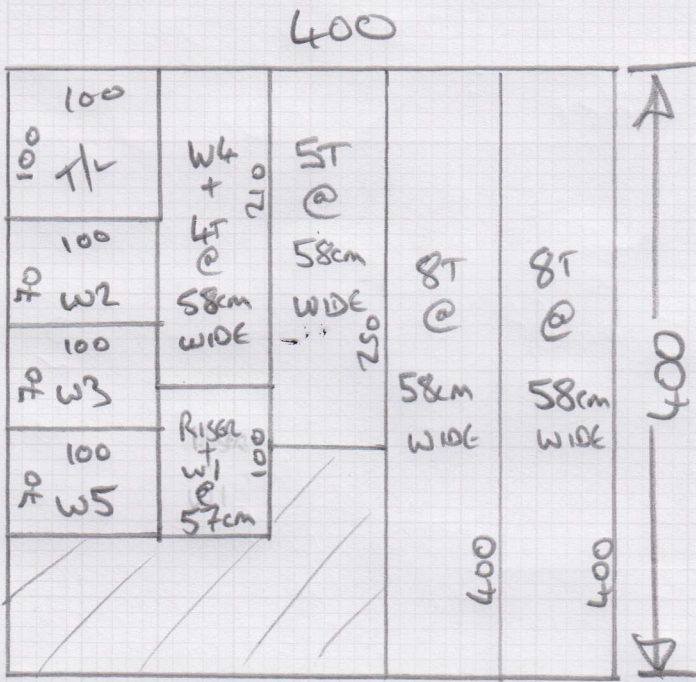 400
100
100
T/L
100
70
W2
100
70
W3
100
70
W5
W4
+
4T
@
58cm
WIDE
210
RISER
+
W1
@
57cm
100
5T
@
58cm
WIDE
250
8T
@
58cm
WIDE
400
8T
@
58cm
WIDE
400
400